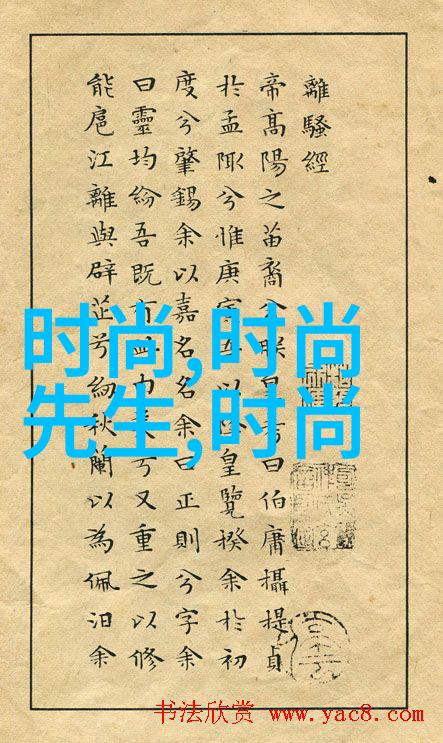 離騷經
帝高陽之苗裔兮朕皇考曰伯庸攝提貞
於孟陬兮惟庚寅吾以降皇覽揆余於初
度兮肇錫余以嘉名名余曰正則兮字余
曰靈均紛吾既有此內美兮又重之以修
能扈江離與辟芷兮紉秋蘭以為佩汩余
时尚,时尚
先生,时尚
书法欣赏 www.yac8.com